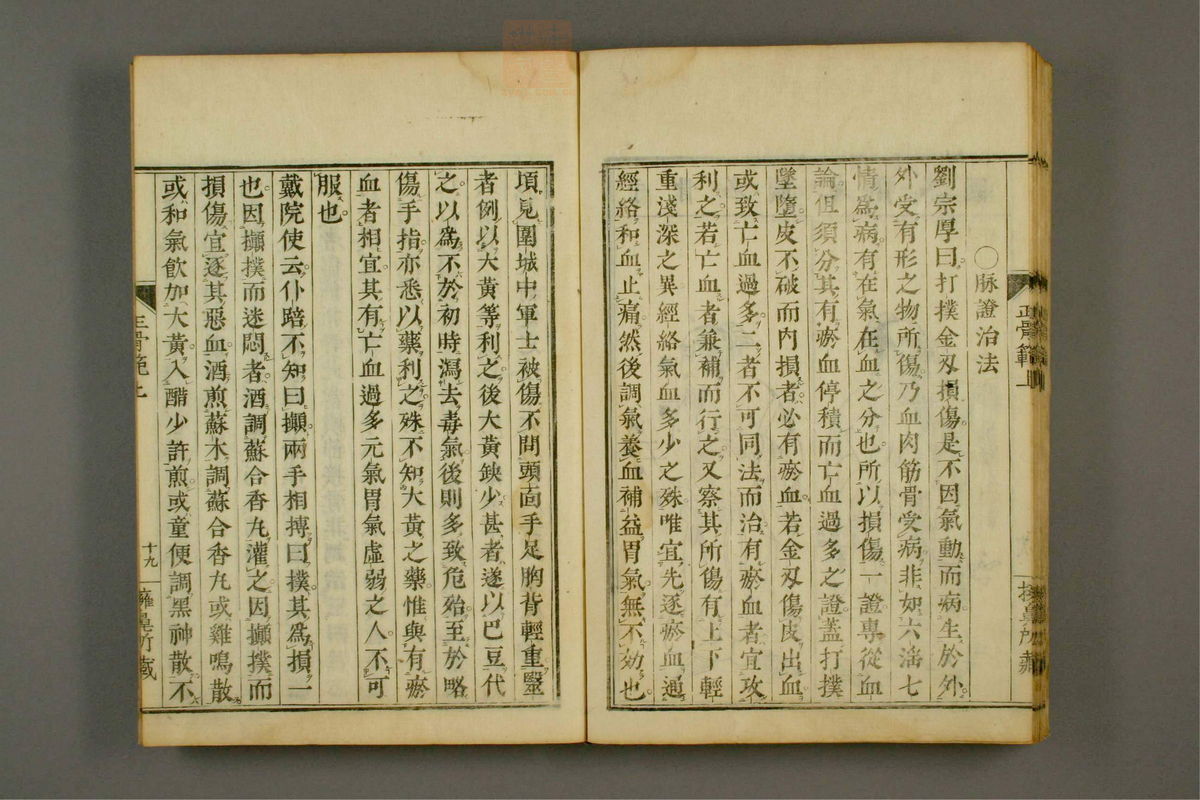 〇脉證治法
劉宗厚曰打撲金刄損傷是不因氣動而病生於外
外受有形之物所傷乃血肉筋骨受病非如六滛七
情爲病有在氣在血之分也所以損傷一證專從血
論但須分其有瘀血停積而亡血過多之證盖打撲
墜墮皮不破而内損者必有瘀血若金刄傷皮出血
或致亡血過多二者不可同法而治有瘀血者宜攻
利之若亡血者兼補而行之又察其所傷有上下輕
重淺深之異經絡氣血多少之殊唯宜先逐瘀血通
經絡和血止痛然後調氣養血補益胃氣無不効也
正骨範上
頃見圍城中軍士被傷不問頭面手足胸背輕重毉
者例以大黄等利之後大黄鈌少甚者遂以巴豆代
之以爲不於初時瀉去毒氣後則多致危殆至於略
傷手指亦悉以藥利之殊不知大黄之藥惟與有瘀
血者相宜其有亡血過多元氣胃氣虚弱之人不可
服也
戴院使云仆踣不知曰攧兩手相搏曰撲其爲損一
也因攧撲而迷悶者酒調蘇合香丸灌之因攧撲而
損傷宜逐其惡血酒煎蘇木調蘇合香丸或雞鳴散
或和氣飮加大黄入醋少許煎或童便調黑神散不
正骨範上
十九
所藏